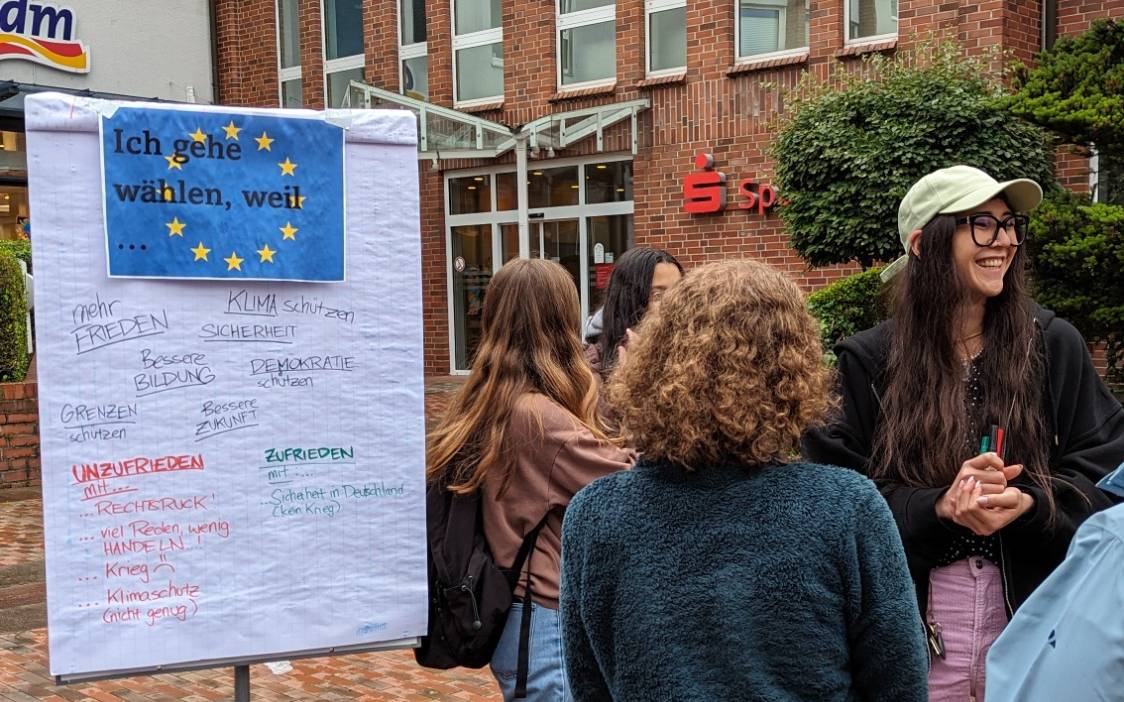 dm
Ich gehe
wählen, weil
...
mehr
FRIEDEN
KLIMA schützen
SICHERHEIT
Bessere
BILDUNG
DEMOKRATIE
schützen
GRENZEN
schützen
Bessere
ZUKUNFT
UNZUFRIEDEN
mit...
...RECHTSRUCK!
... viel Reden, wenig
HANDELN !
... Krieg
... Klimaschutz
(nicht genug)
ZUFRIEDEN
mit ...
...Sicherheit in Deutschland
(kein Krieg)
Sp